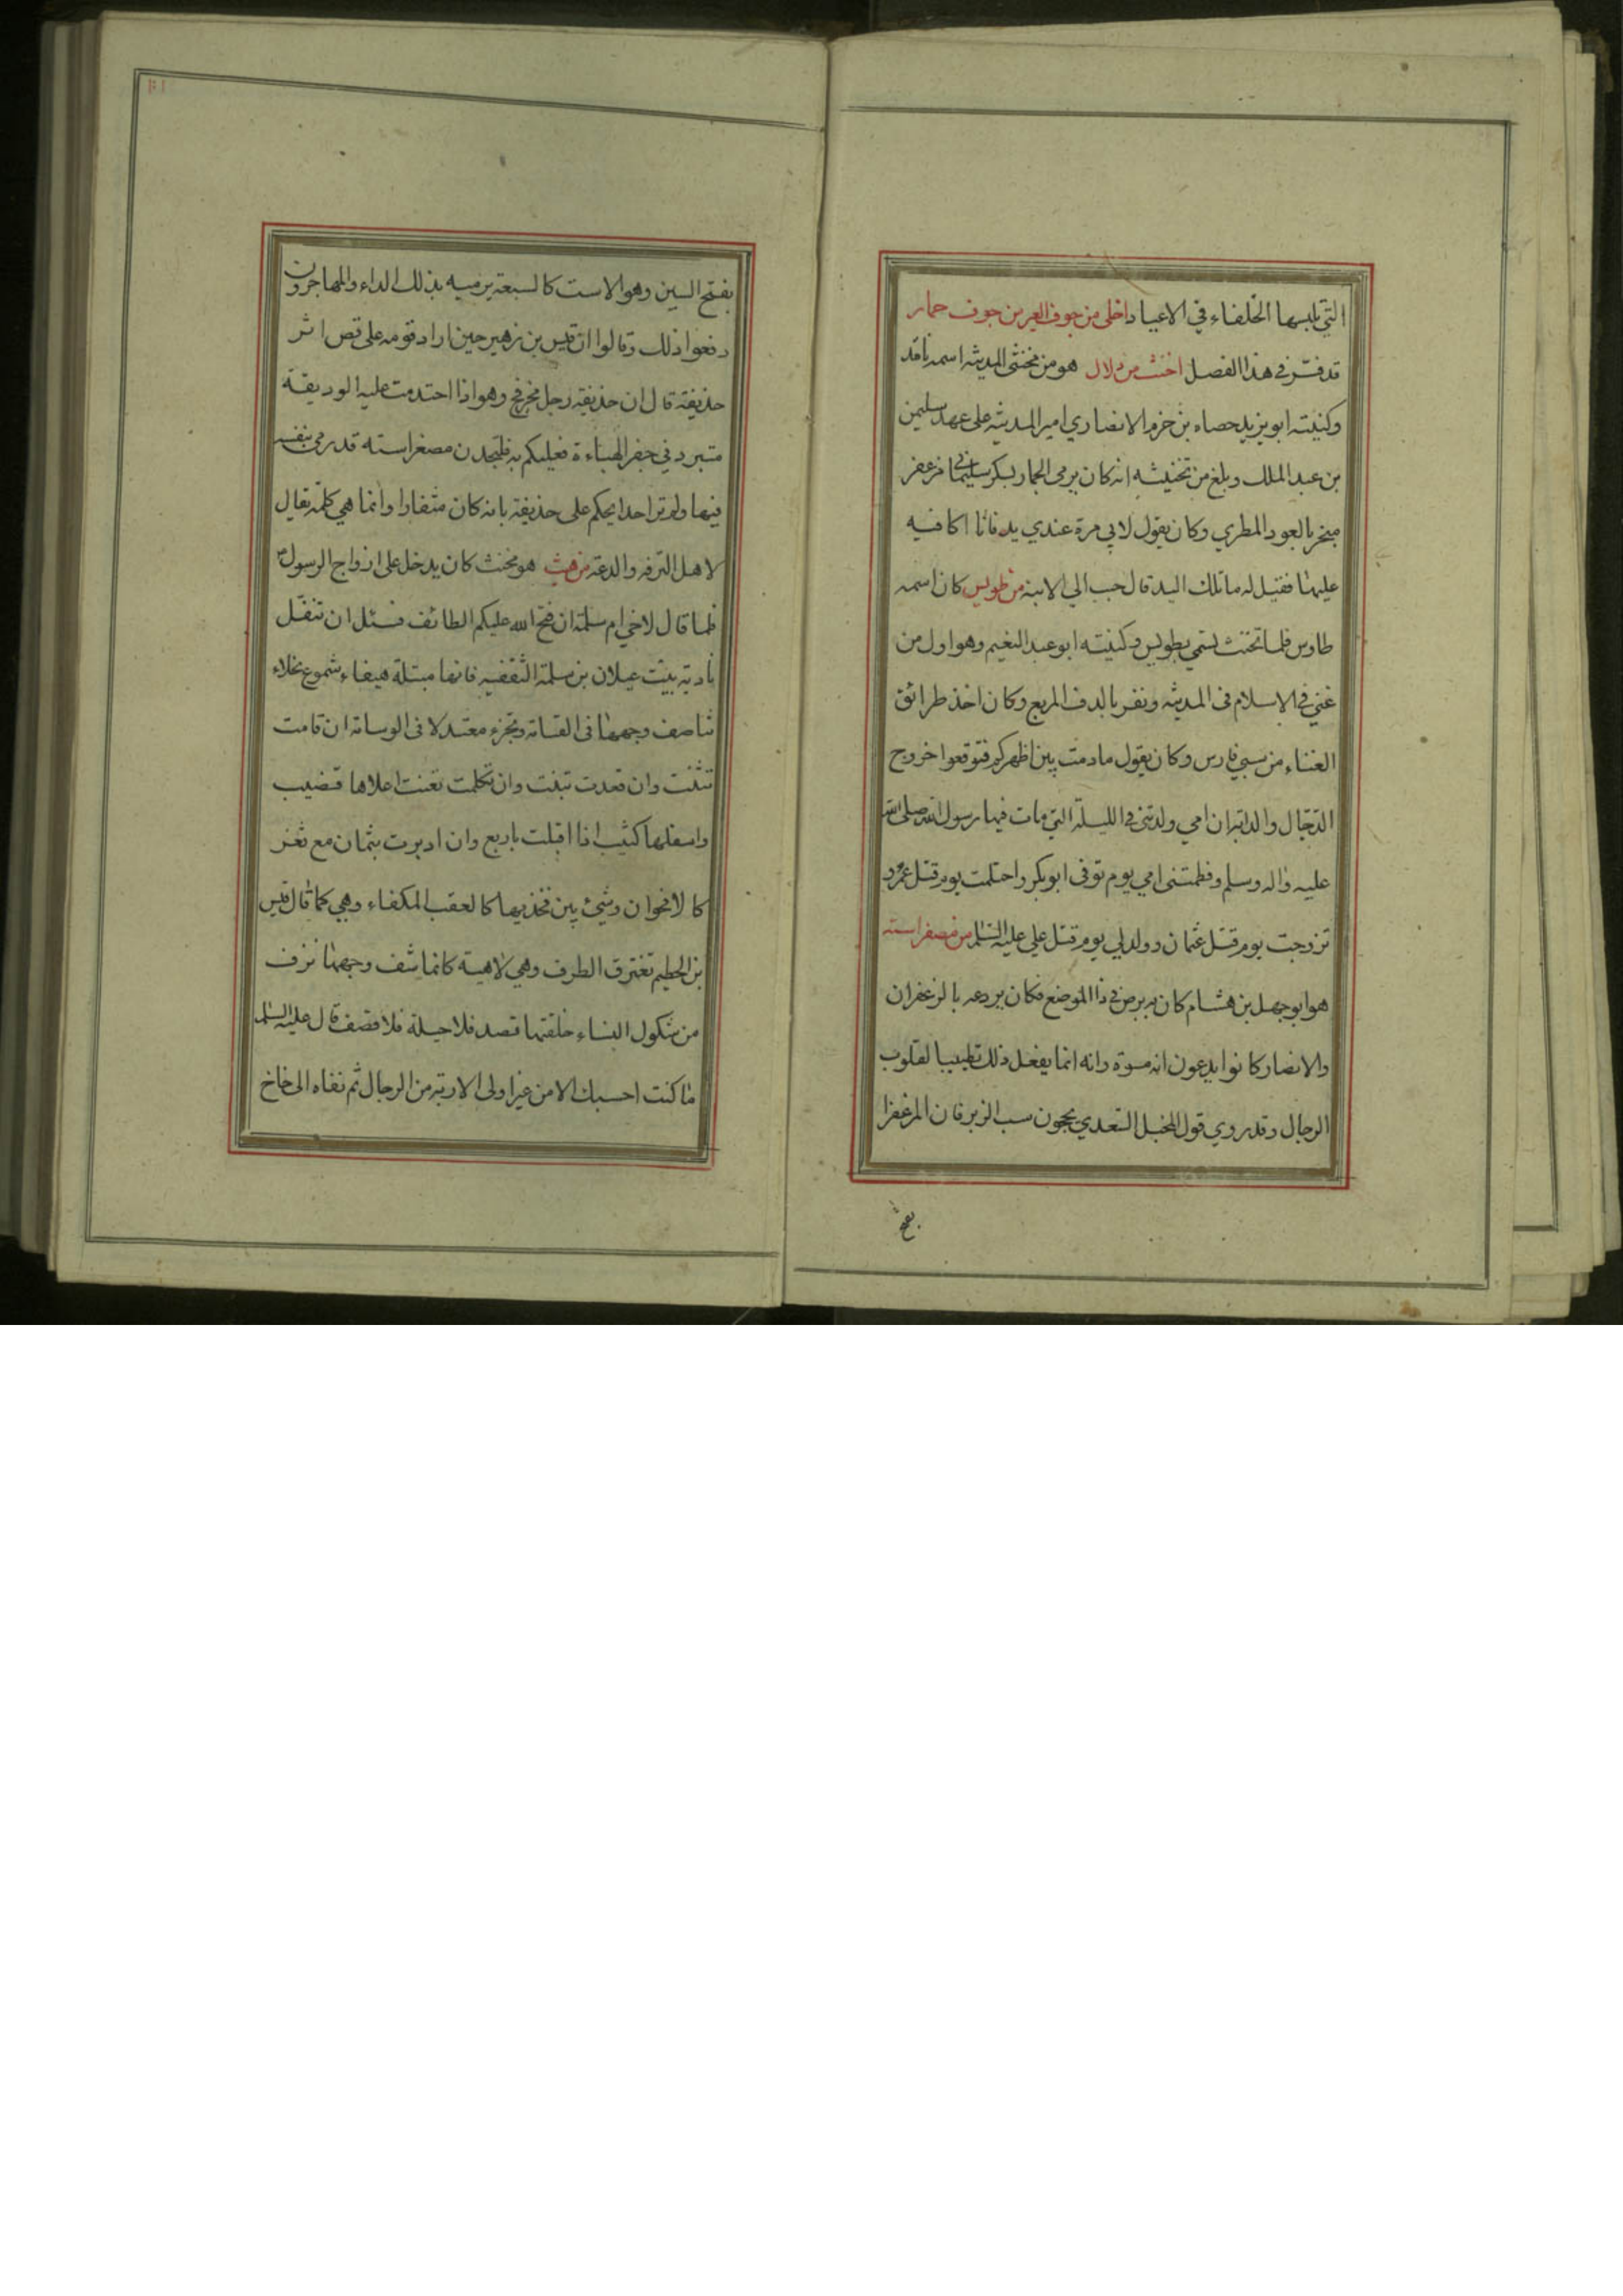 التي يلبسها الخلفاء في الاعياد اخلى من جوف العير من جوف حمار
قد فسر في هذا الفصل اخنث من دلال هو من مخنثى المدينة اسمه نافد
وكنيته ابو يزيد حصاه بن حزم الانصاري امير المدينة على عهد سليمن
بن عبد الملك وبلغ من تخنيثه انه كان يرمي الجمار بسكر سليماني مزعفر
مبخر بالعود المطري وكان يقول لابي مرة عندي يد فانا اكافيه
عليها فقيل له ما تلك اليد قال حبب الي الابنة من طويس كان اسمه
طاوس فلما تخنث تسمي بطويس وكنيته ابو عبد النعيم وهو اول من
غني في الاسلام في المدينة ونقر بالدف المربع وكان اخذ طرائق
الغناء من سبي فارس وكان يقول ما دمت بين اظهركم فتوقعوا خروج
الدجال والدابة ان امي ولدتني في الليلة التي مات فيها رسول الله صلى الله
عليه واله وسلم وفطمتني امي يوم توفى ابو بكر واحتلمت يوم قتل عمر و
تزوجت يوم قتل عثمان وولد لي يوم قتل علي عليه السلم من مصفر استه
هو ابو جهل بن هشام كان به برص في ذا الموضع فكان يردعه بالزعفران
والانصار كانوا يدعون انه مسوة وانه انما يفعل ذلك تطييبا لقلوب
الرجال وقد روي قول المخبل السعدي يحجون سب الزبرقان المزعفرا
بفتح
بفتح السين وهو الاست كالسبعة يرميه بذلك الداء والمهاجرون
دفعوا ذلك وقالوا ان قيس بن زهير حين اراد قومه على قص اثر
حذيفة قال ان حذيفة رجل مخرفج وهو اذا احتدمت عليه الوديقة
متبرد في جفر الهباءة فعليكم به فلتجدن مصفر استه قد رمى بنفسه
فيها ولم تر احدا يحكم على حذيفة بانه كان مثفارا وانما هي كلمة يقال
لاهل الترفه والدعة من هيث هو مخنث كان يدخل على ازواج الرسول ص
فلما قال لاخي ام سلمة ان فتح الله عليكم الطائف فسئل ان تنفل
بادية بنت عيلان بن سلمة الثقفيه فانها مبتلة هيفاء شموع نجلاء
تناصف وجهها في القسامة وتجزء معتدلا في الوسامة ان قامت
تثنت وان قعدت تبنت وان تكلمت تغنت اعلاها قضيب
واسفلها كثيب اذا اقبلت باربع وان ادبرت بثمان مع ثغر
كالاقحوان وشيئ بين فخذيها كالعقب المكفاء وهي كما قال قيس
بن الحطيم تغترق الطرف وهي لاهية كانما شف وجهها نزف
من شكول النساء خلقتها قصد فلا جبلة فلا قصف قال عليه السلم
ما كنت احسبك الا من غير اولى الاربة من الرجال ثم نفاه الى خاخ